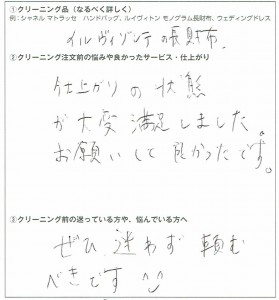 ①クリーニング品（なるべく詳しく）
例：シャネル マトラッセ　ハンドバッグ、ルイヴィトン モノグラム長財布、ウェディングドレス
イルヴィゾンテの長財布.
②クリーニング注文前の悩みや良かったサービス・仕上がり
仕上がりの状態
が大変満足しました。
お願いして良かったです。
③クリーニング前の迷っている方や、悩んでいる方へ
ぜひ迷わず頼む
べきです ^^